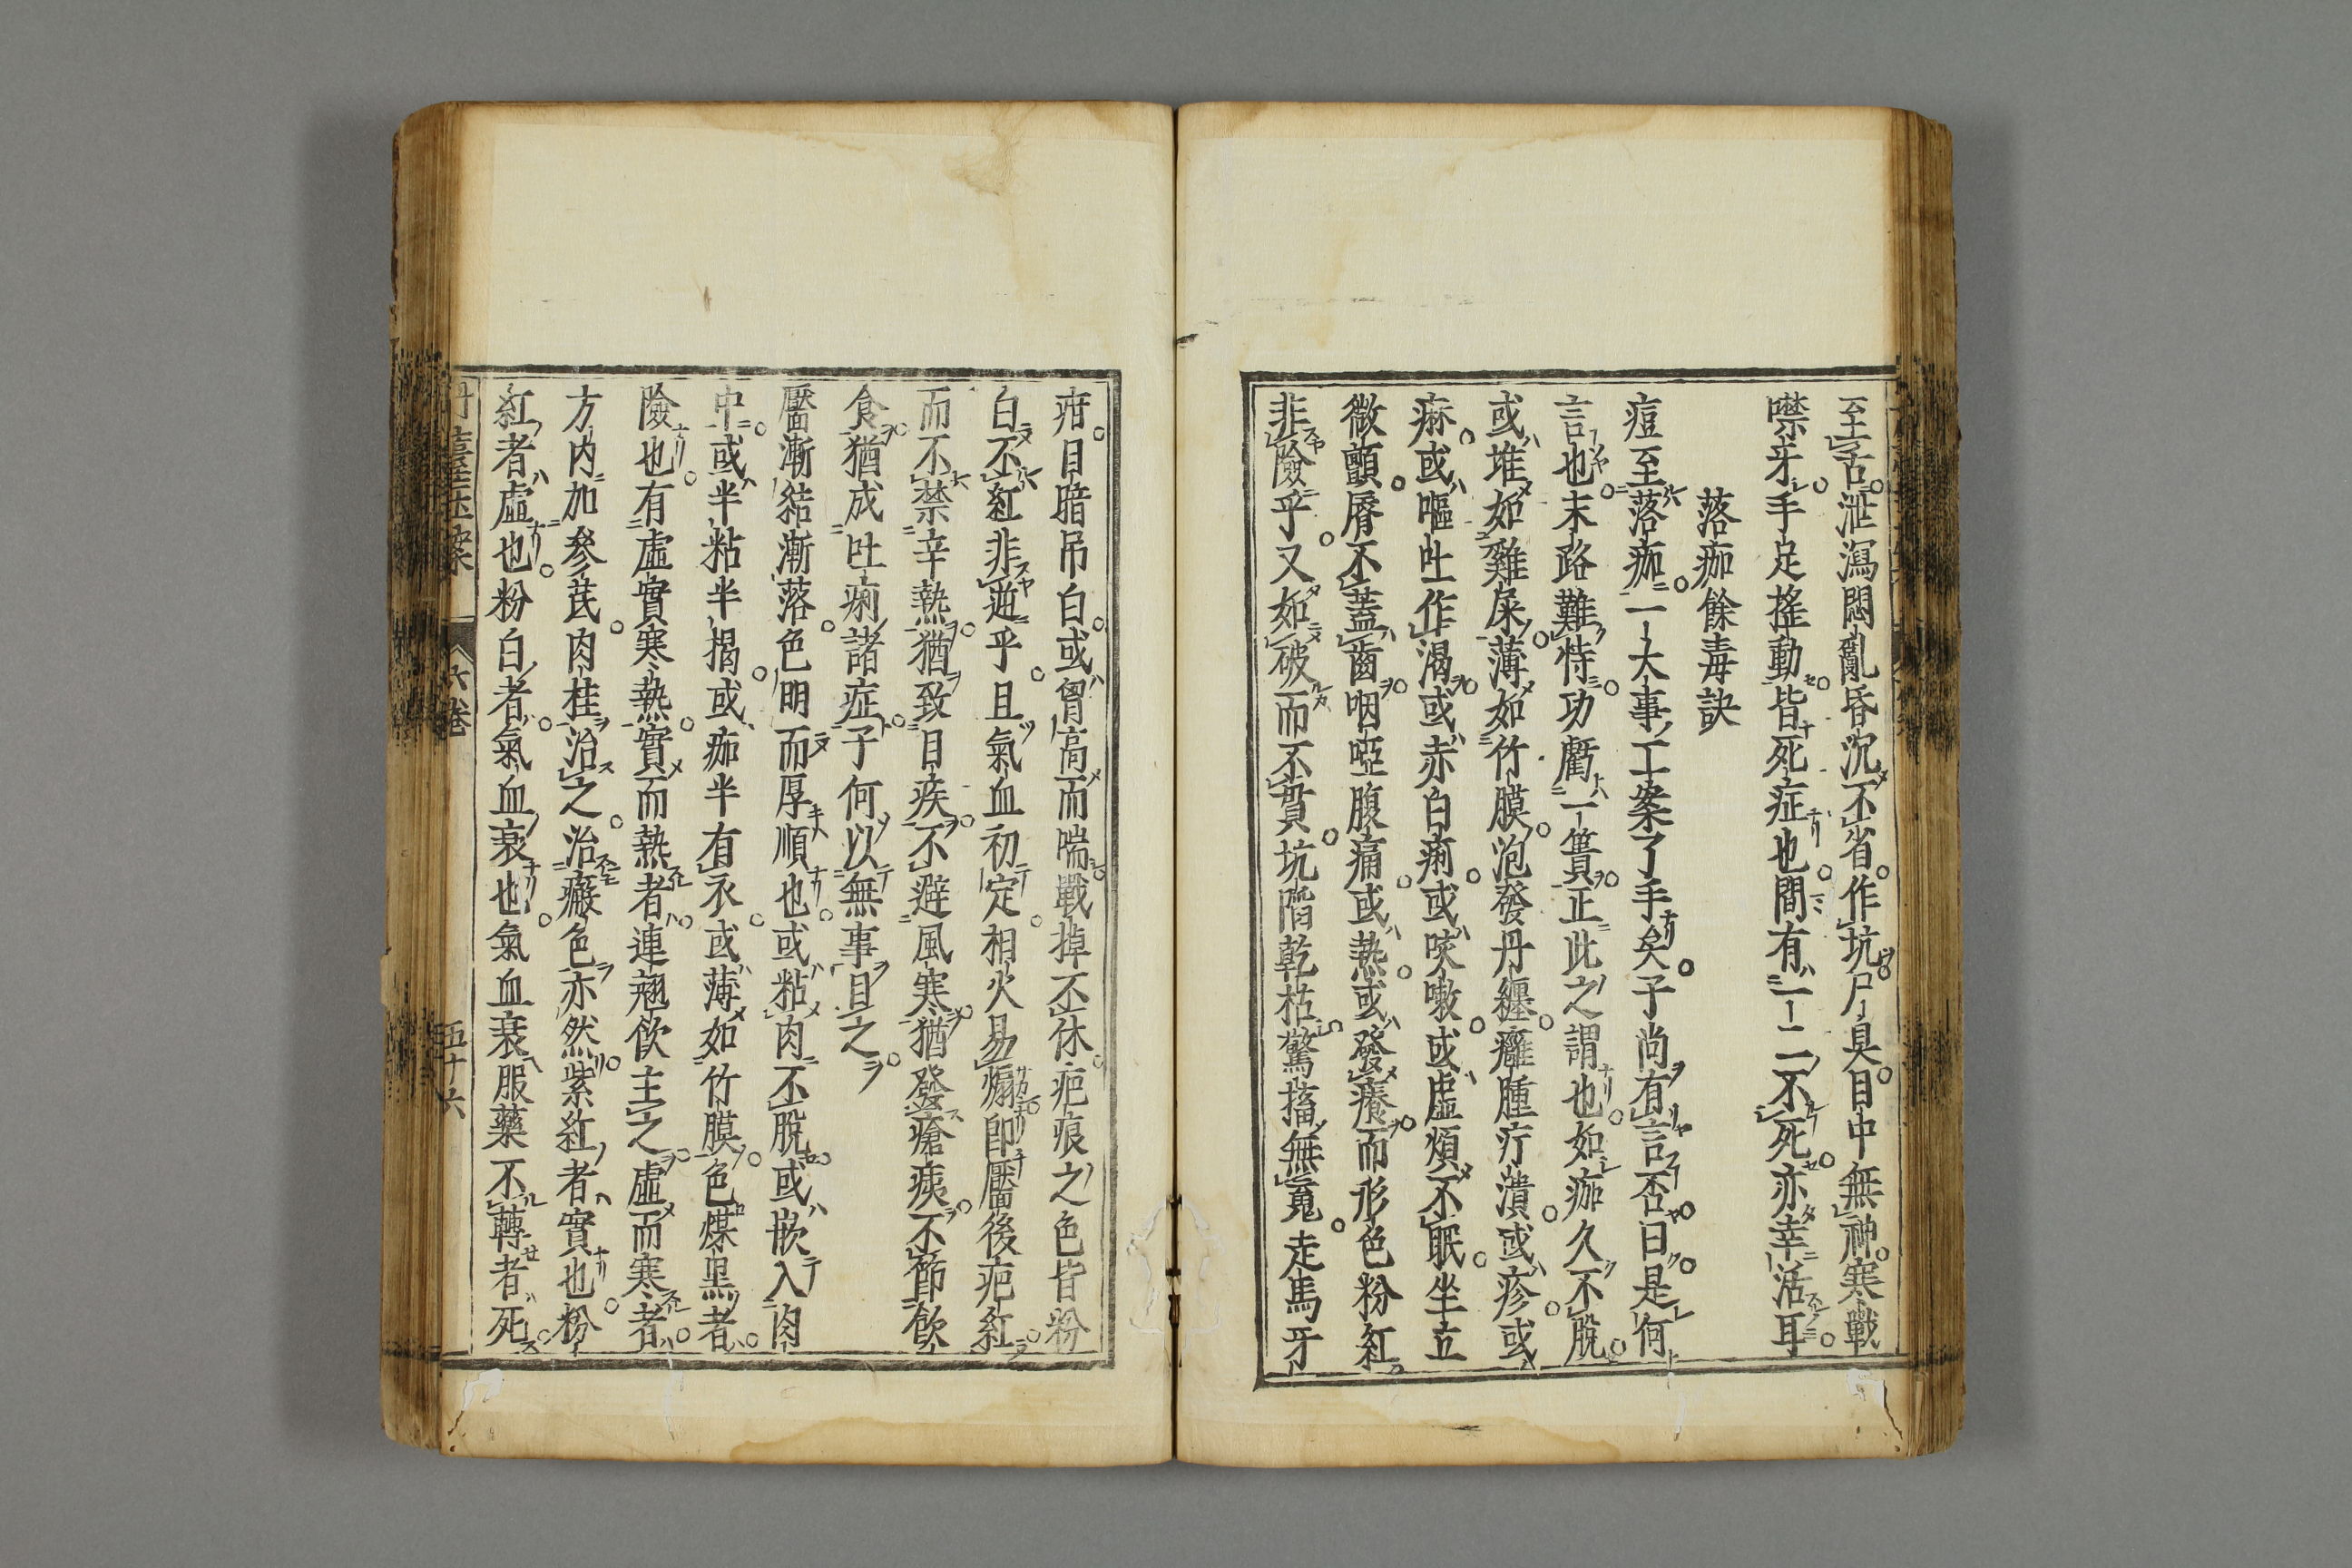 至舌泄瀉悶亂昏沉不省作坑尸臭目中無神寒戰
噤牙手足搖動皆死症也間有一二不死亦幸活耳
落痂餘毒訣
痘至落痂一大事工案了手矣子尚有言否曰是何
言也末路難恃功虧一簣正此之謂也如痂久不脫
或堆如雞屎薄如竹膜泡發丹纏癰腫疔潰或疹或
痳或嘔吐作渴或赤白痢或咳嗽或虛煩不眠坐立
微顫脣不蓋齒咽啞腹痛或熱或發癢而形色粉紅
非險乎又如破而不貫坑陷乾枯驚搐無䰟走馬牙
疳目暗吊白或胷高而喘戰掉不休疤痕之色皆粉
白不紅非逆乎且氣血初定相火易煽卽靨後疤紅
而不禁辛熱猶致目疾不避風寒猶發瘡痍不節飲
食猶成吐痢諸症子何以無事目之
靨漸結漸落色明而厚順也或粘肉不脫或嵌入肉
中或半粘半揭或痂半有衣或薄如竹膜色煤黑者
險也有虛實寒熱實而熱者連翹飲主之虛而寒者
方內加參芪肉桂治之治癥色亦然紫紅者實也粉
紅者虛也粉白者氣血衰也氣血衰服藥不轉者死
丹臺玉案 六卷 五十六